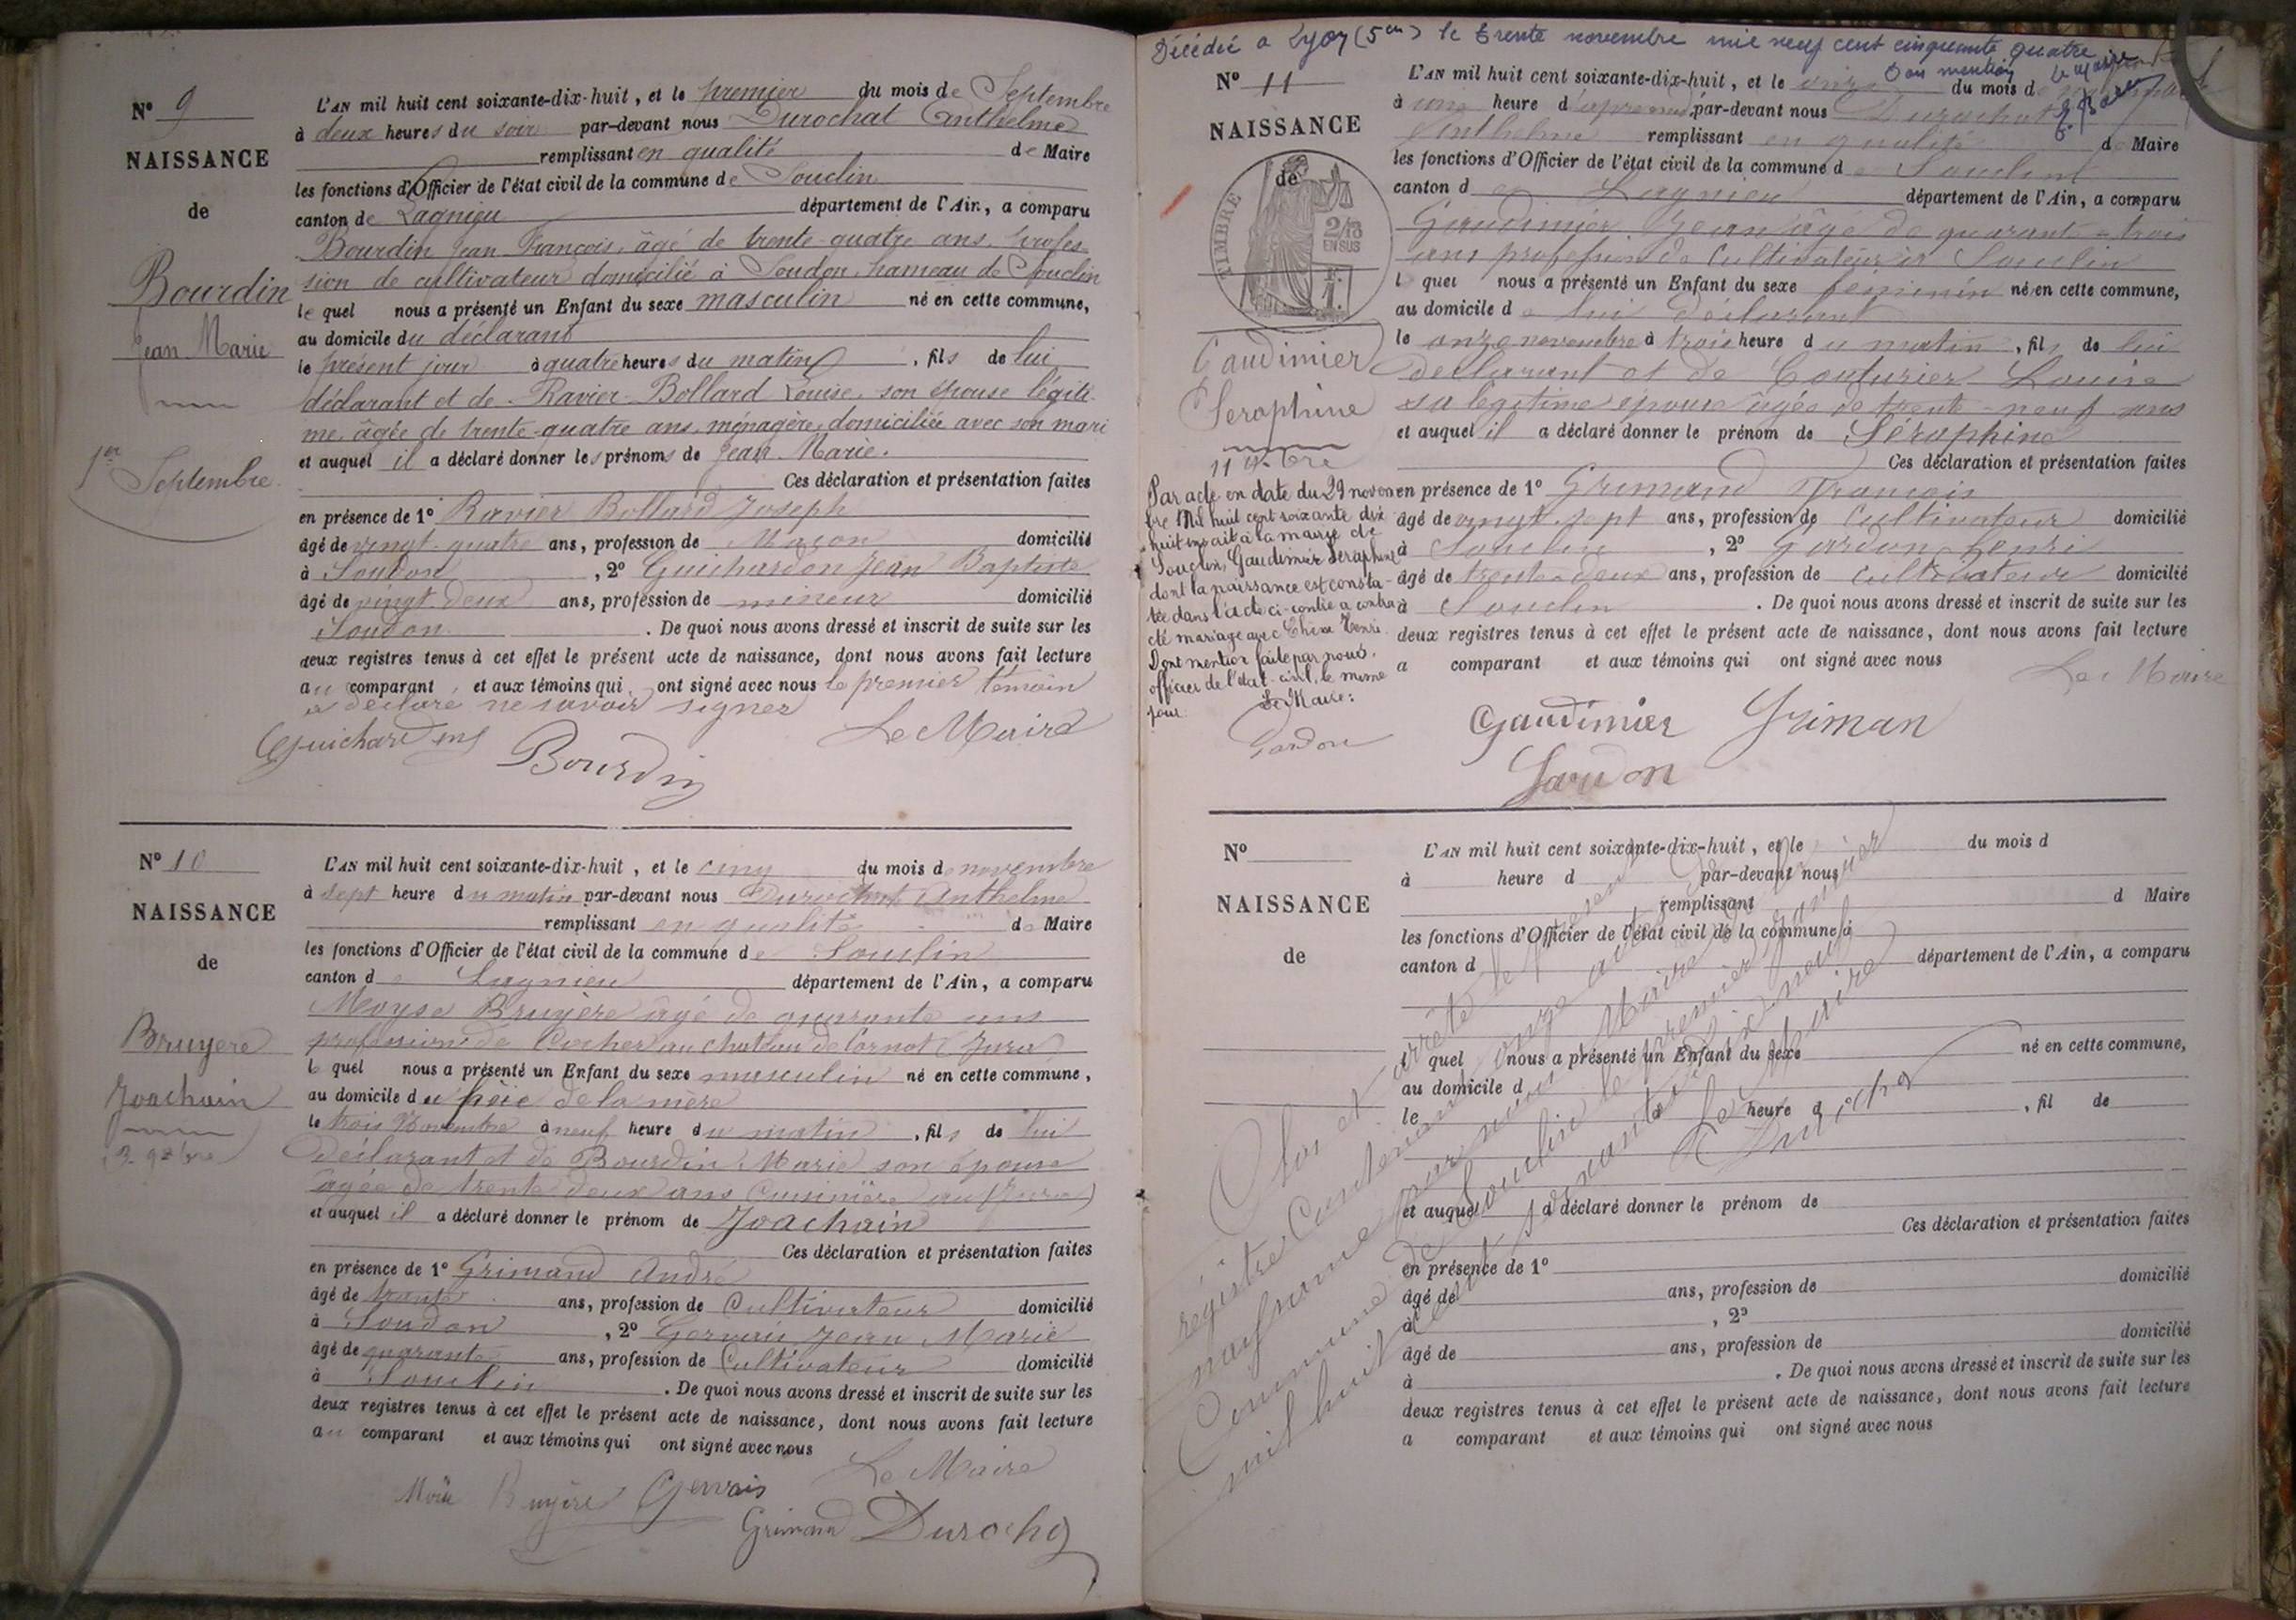 N° 9
NAISSANCE
de
Bourdin
Jean Marie
1er Septembre
L'AN mil huit cent soixante-dix-huit, et le premier du mois de Septembre
à deux heures du soir par-devant nous Durochat Anthelme
remplissant en qualité de Maire
les fonctions d'Officier de l'état civil de la commune de Souclin
canton de Lagnieu département de l'Ain, a comparu
Bourdin Jean François, âgé de trente-quatre ans, profes-
sion de cultivateur domicilié à Soudon, hameau de Souclin
lequel nous a présenté un Enfant du sexe masculin né en cette commune,
au domicile du déclarant
le présent jour à quatre heures du matin, fils de lui
déclarant et de Ravier-Bollard Louise, son épouse légiti-
me, âgée de trente-quatre ans, ménagère, domiciliée avec son mari
et auquel il a déclaré donner les prénoms de Jean Marie.
Ces déclaration et présentation faites
en présence de 1° Ravier Bollard Joseph
âgé de vingt-quatre ans, profession de Maçon domicilié
à Soudon, 2° Guichardon Jean Baptiste
âgé de vingt-deux ans, profession de mineur domicilié
Soudon. De quoi nous avons dressé et inscrit de suite sur les
deux registres tenus à cet effet le présent acte de naissance, dont nous avons fait lecture
au comparant, et aux témoins qui ont signé avec nous le premier témoin
a déclaré ne savoir signer
Le Maire
Bourdin
N° 10
NAISSANCE
de
Bruyere
Joachain
L'AN mil huit cent soixante-dix-huit, et le cinq du mois de novembre
à sept heure du matin par-devant nous Durochat Anthelme
remplissant en qualité de Maire
les fonctions d'Officier de l'état civil de la commune de Souclin
canton de Lagnieu département de l'Ain, a comparu
Moyse Bruyère âgé de quarante ans
profession de Cocher au chateau de Cornot (Jura)
lequel nous a présenté un Enfant du sexe masculin né en cette commune,
au domicile du de la mère
le trois Novembre à neuf heure du matin, fils de lui
déclarant et de Bourdin Marie son épouse
âgée de trente deux ans Cuisinière au (Jura)
et auquel il a déclaré donner le prénom de Joachain
Ces déclaration et présentation faites
en présence de 1° Grimand André
âgé de trente ans, profession de Cultivateur domicilié
à Soudon, 2° Gervais Jean Marie
âgé de quarante ans, profession de Cultivateur domicilié
à Souclin. De quoi nous avons dressé et inscrit de suite sur les
deux registres tenus à cet effet le présent acte de naissance, dont nous avons fait lecture
au comparant et aux témoins qui ont signé avec nous
Le Maire
Bruyère Gervais
Grimand Durochat
Décédée a Lyon (5e) le trente novembre mil neuf cent cinquante quatre
Dont mention Le Maire
N° 11
NAISSANCE
de
TIMBRE
2/10
EN SUS
Gaudimier
Seraphine
11 9bre
Par acte en date du 29 novem
bre Mil huit cent soixante dix
huit inscrit à la mairie de
Souclin, Gaudimier Seraphine
dont la naissance est consta-
tée dans l'acte ci-contre a contra
cté mariage avec Henri
Dont mention faite par nous,
officier de l'état-civil, le même
jour.
Le Maire:
Gardon
L'AN mil huit cent soixante-dix-huit, et le onze du mois de
à une heure d'apres midi par-devant nous Durochat
Anthelme remplissant en qualité de Maire
les fonctions d'Officier de l'état civil de la commune de Souclin
canton de Lagnieu département de l'Ain, a comparu
Gaudimier Jean âgé de quarante-trois
ans profession de Cultivateur à Souclin
lequel nous a présenté un Enfant du sexe feminin né en cette commune,
au domicile de lui déclarant
le onze novembre à trois heure du matin, fils de lui
déclarant et de Couturier Louise
sa légitime épouse âgée de trente-neuf ans
et auquel il a déclaré donner le prénom de Séraphine
Ces déclaration et présentation faites
en présence de 1° Grimand François
âgé de vingt-sept ans, profession de Cultivateur domicilié
à Souclin, 2° Gardon Henri
âgé de trente-deux ans, profession de cultivateur domicilié
à Souclin. De quoi nous avons dressé et inscrit de suite sur les
deux registres tenus à cet effet le présent acte de naissance, dont nous avons fait lecture
a comparant et aux témoins qui ont signé avec nous
Le Maire
Gaudimier Griman
Gardon
N°
NAISSANCE
de
L'AN mil huit cent soixante-dix-huit, et le du mois d
à heure d par-devant nous
remplissant d Maire
les fonctions d'Officier de l'état civil de la commune d
canton d département de l'Ain, a comparu
l quel nous a présenté un Enfant du sexe né en cette commune,
au domicile d
le à heure d, fil de
et auquel a déclaré donner le prénom de
Ces déclaration et présentation faites
en présence de 1°
âgé de ans, profession de domicilié
à, 2°
âgé de ans, profession de domicilié
à. De quoi nous avons dressé et inscrit de suite sur les
deux registres tenus à cet effet le présent acte de naissance, dont nous avons fait lecture
a comparant et aux témoins qui ont signé avec nous
Clos et arrêté le présent
registre Contenant onze actes de
naissance par nous Maire de la
Commune de Souclin le premier Janvier
mil huit cent soixante dix neuf
Le Maire
Durochat